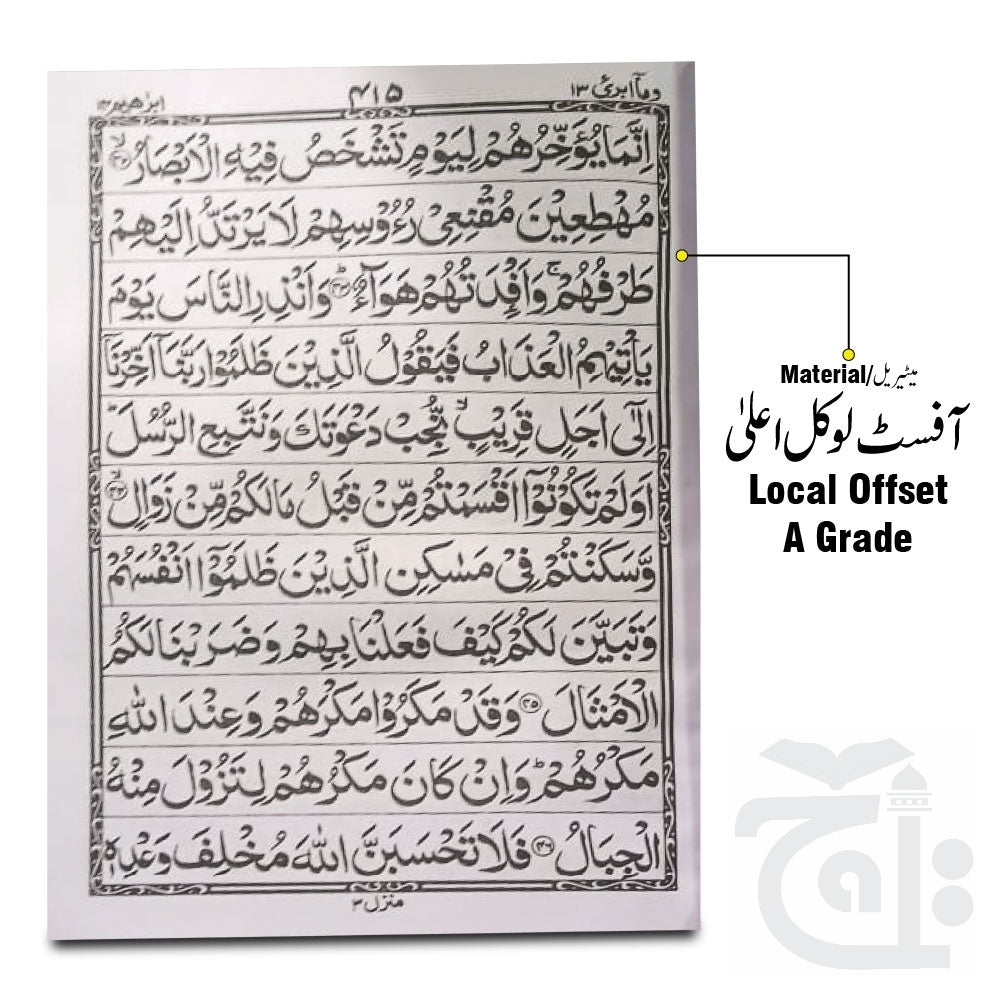 ابرٰھیم ۱۴ ۴۱۵ وماۤ ابرئ ۱۳
اِنَّمَا يُؤَخِّرُهُمْ لِيَوْمٍ تَشْخَصُ فِيْهِ الْاَبْصَارُ ۙ﴿۴۲﴾
مُهْطِعِيْنَ مُقْنِعِيْ رُءُوْسِهِمْ لَا يَرْتَدُّ اِلَيْهِمْ
طَرْفُهُمْ ۚ وَاَفْـِٕدَتُهُمْ هَوَآءٌ ؕ﴿۴۳﴾ وَاَنْذِرِ النَّاسَ يَوْمَ
يَاْتِيْهِمُ الْعَذَابُ فَيَقُوْلُ الَّذِيْنَ ظَلَمُوْا رَبَّنَاۤ اَخِّرْنَاۤ
اِلٰٓى اَجَلٍ قَرِيْبٍ ۙ نُّجِبْ دَعْوَتَكَ وَنَتَّبِعِ الرُّسُلَ ؕ
اَوَلَمْ تَكُوْنُوْۤا اَقْسَمْتُمْ مِّنْ قَبْلُ مَا لَكُمْ مِّنْ زَوَالٍ ۙ﴿۴۴﴾
وَّسَكَنْتُمْ فِيْ مَسٰكِنِ الَّذِيْنَ ظَلَمُوْۤا اَنْفُسَهُمْ
وَتَبَيَّنَ لَكُمْ كَيْفَ فَعَلْنَا بِهِمْ وَضَرَبْنَا لَكُمُ
الْاَمْثَالَ ﴿۴۵﴾ وَقَدْ مَكَرُوْا مَكْرَهُمْ وَعِنْدَ اللّٰهِ
مَكْرُهُمْ ؕ وَاِنْ كَانَ مَكْرُهُمْ لِتَزُوْلَ مِنْهُ
الْجِبَالُ ﴿۴۶﴾ فَلَا تَحْسَبَنَّ اللّٰهَ مُخْلِفَ وَعْدِهٖ
منزل ۳
Material/میٹیریل
آفسٹ لوکل اعلیٰ
Local Offset
A Grade
تاج